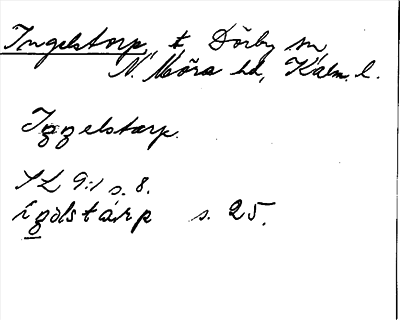 Ingelstorp, t Dörby sn,
N. Möra hd, Kalm. l.
Iggelstærp.
SL 9:1 s. 8.
ígəlstárp s. 25.